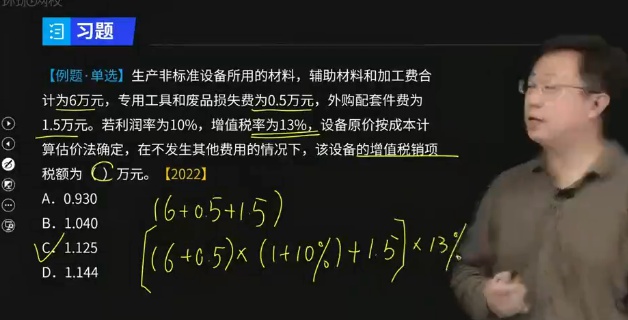 环球网校
习题
【例题·单选】生产非标准设备所用的材料，辅助材料和加工费合
计为6万元，专用工具和废品损失费为0.5万元，外购配套件费为
1.5万元。若利润率为10%，增值税率为13%，设备原价按成本计
算估价法确定，在不发生其他费用的情况下，该设备的增值税销项
税额为（）万元。【2022】
A. 0.930
B. 1.040
C. 1.125
D. 1.144
(6+0.5+1.5)
[(6+0.5)×(1+10%)+1.5]×13%